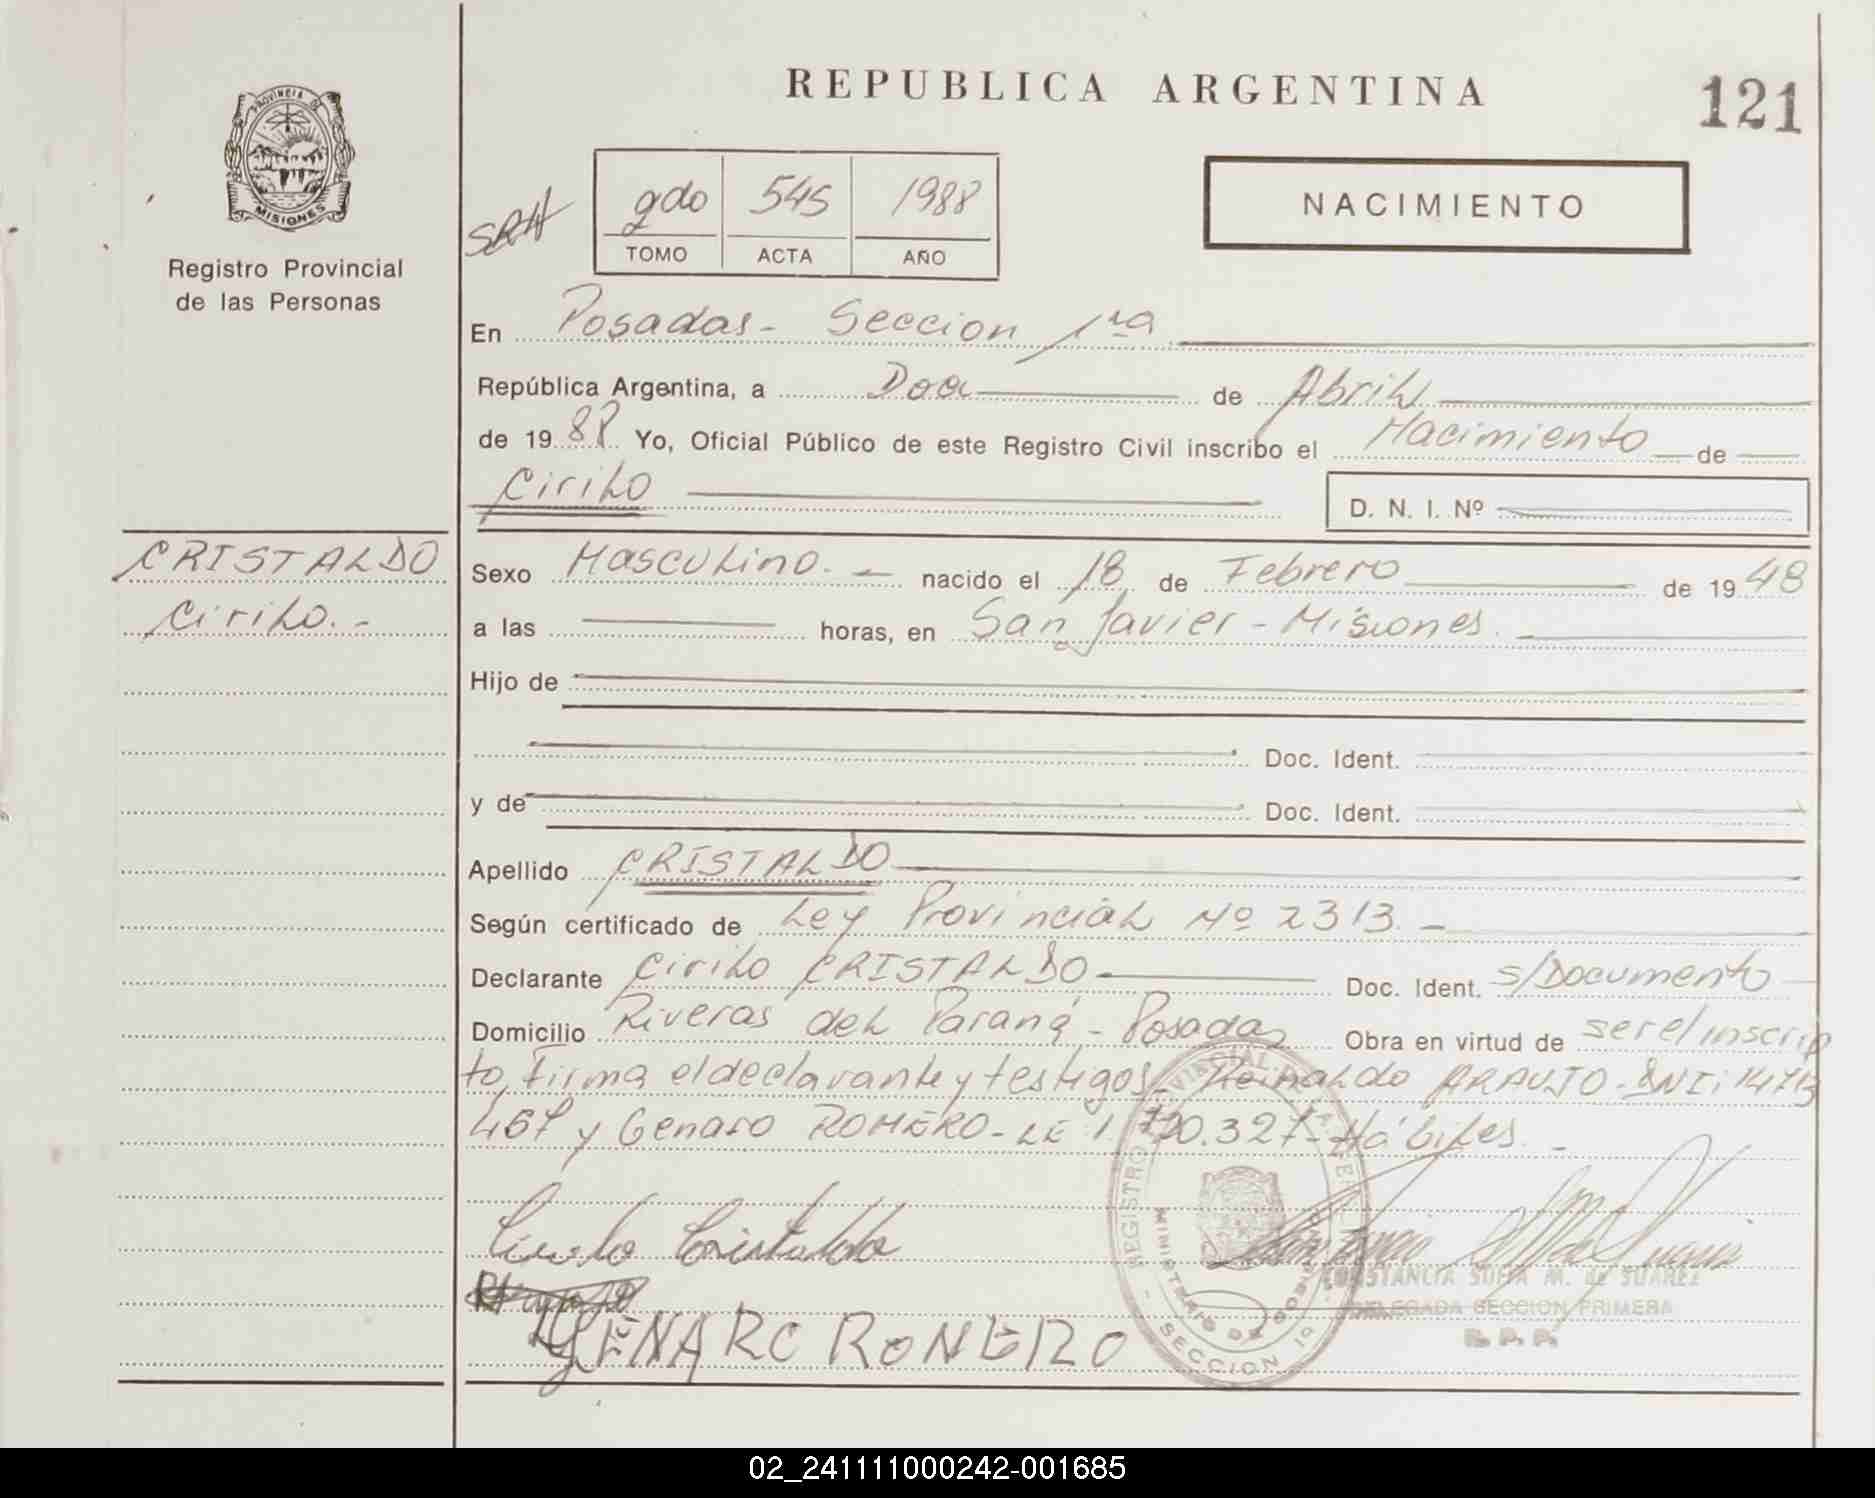 REPUBLICA ARGENTINA
121
PROVINCIA DE
MISIONES
Registro Provincial
de las Personas
SRH
2do 545 1988
TOMO ACTA AÑO
NACIMIENTO
En Posadas - Seccion 1ra
República Argentina, a Doce de Abril
de 1988 Yo, Oficial Público de este Registro Civil inscribo el Nacimiento de
Cirilo
D. N. I. Nº
CRISTALDO
Cirilo. -
Sexo Masculino. - nacido el 18 de Febrero de 1948
a las horas, en San Javier - Misiones. -
Hijo de
Doc. Ident.
y de Doc. Ident.
Apellido CRISTALDO
Según certificado de Ley Provincial Nº 2313. -
Declarante Cirilo CRISTALDO Doc. Ident. s/Documento
Domicilio Riveras del Paraná - Posadas Obra en virtud de ser el inscrip
to, Firma el declarante y testigos - Reinaldo ARAUJO - DNI: 14713
467 y Genaro ROMERO - LE 1.720.327 - Hábiles. -
Cirilo Cristaldo
GENARO ROMERO
REGISTRO PROVINCIAL DE LAS PERSONAS
MINISTERIO DE GOBIERNO
- SECCION 1a -
CONSTANCIA SOFIA M. de SUAREZ
DELEGADA SECCION PRIMERA
R. P. P.
02_241111000242-001685